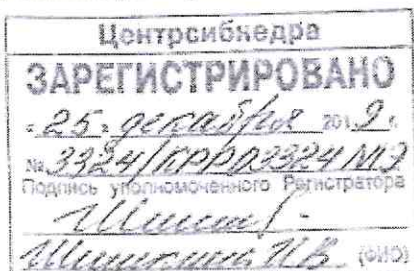 Центрсибнедра
ЗАРЕГИСТРИРОВАНО
"25" декабря 2019 г.
№ 3324/КРР03324 МЭ
Подпись уполномоченного Регистратора
И.В. (ФИО)